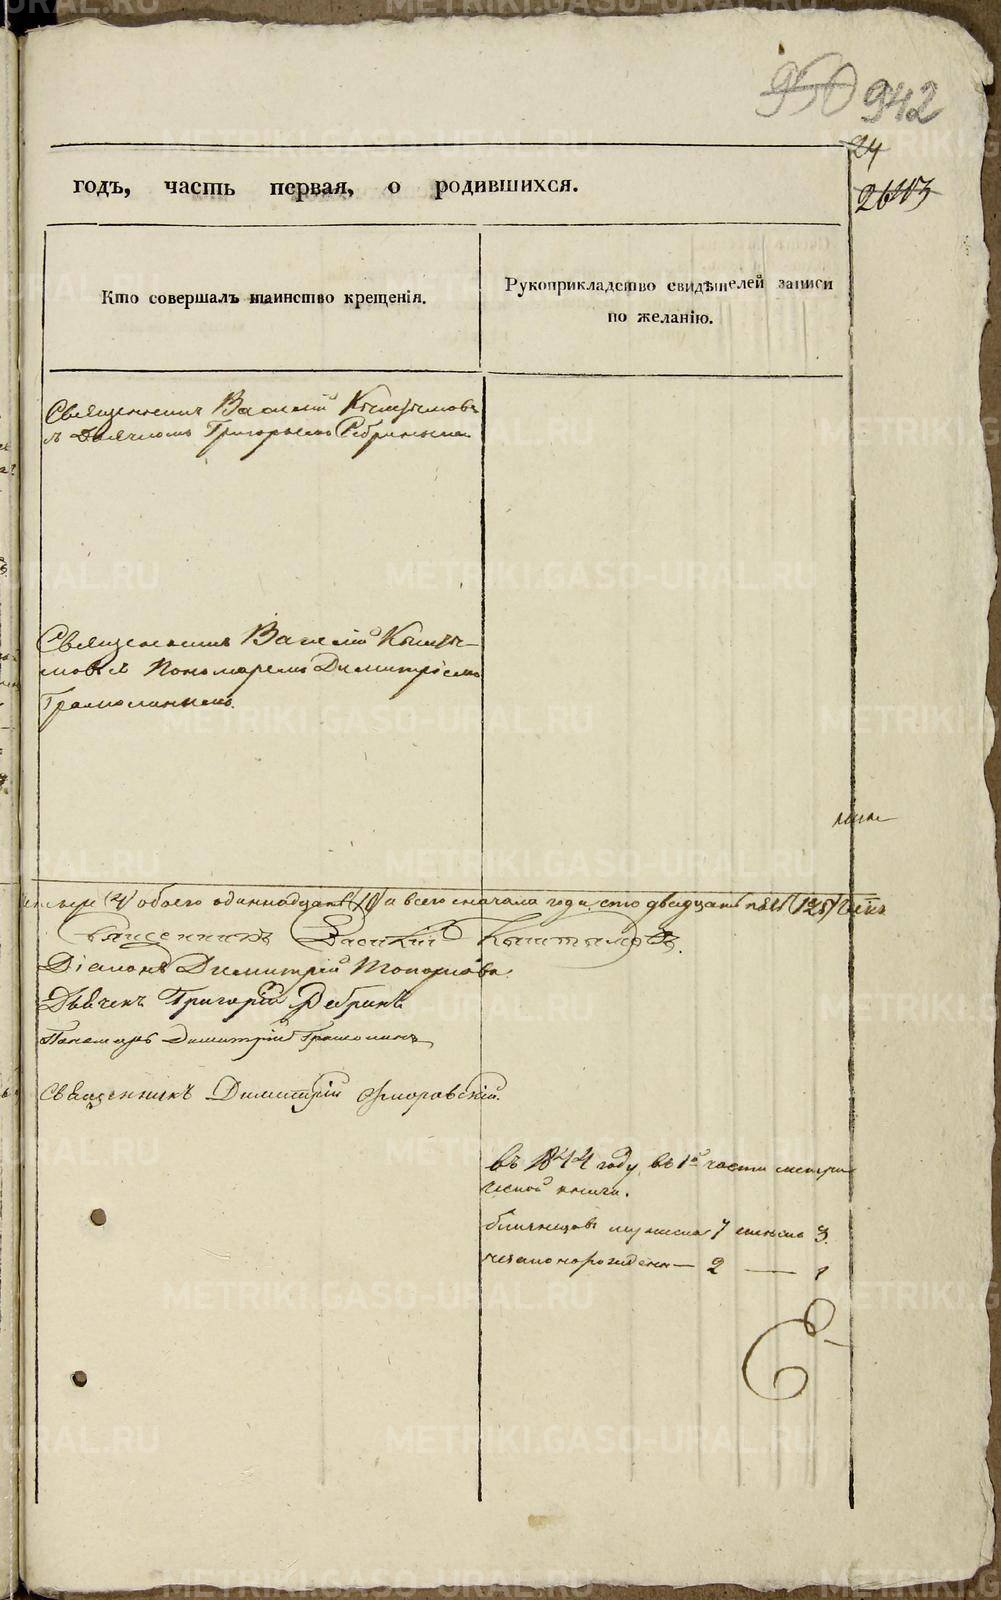 950 942
24
годъ, часть первая, о родившихся.
Кто совершалъ таинство крещенія.
Рукоприкладство свидѣтелей записи
по желанію.
Священникъ Василій Кыштымовъ
съ Дьячкомъ Григорьемъ Ребринымъ
Священникъ Василій Кышты-
мовъ съ Пономаремъ Димитріемъ
Грамолинымъ
обоего одиннадцать а всего сначала года сто двадцать
Священникъ Василій Кыштымовъ.
Діаконъ Димитрій Топорковъ
Дьячекъ Григорій Ребринъ
Пономарь Димитрій Грамолинъ
Священникъ Димитрій Флоровскій.
въ 1844 году, въ 1й части метри
ческой книги.
близнецовъ мужеска 7 женска 3.
незаконорожден— 2 — 1
METRIKI.GASO-URAL.RU